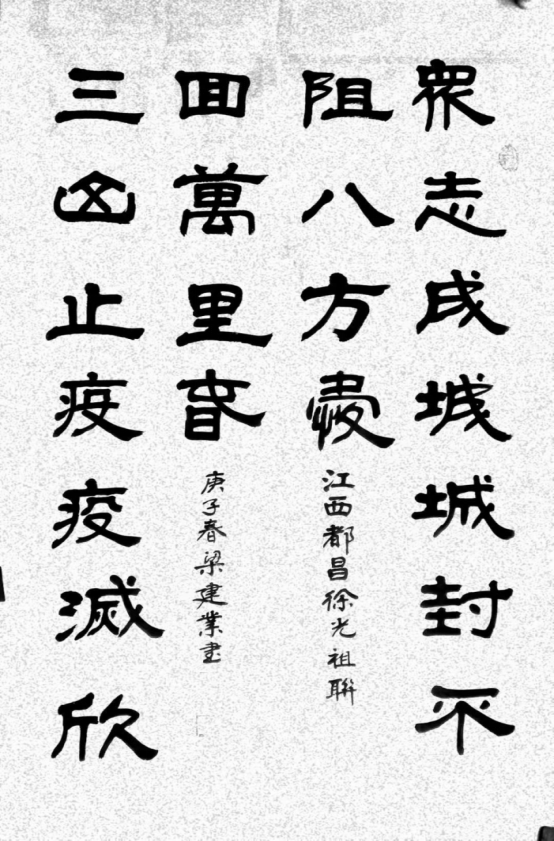 眾志成城城封不
阻八方愛
江西都昌徐光祖聯
三止疫疫滅欣
回萬里春
庚子春梁建業書